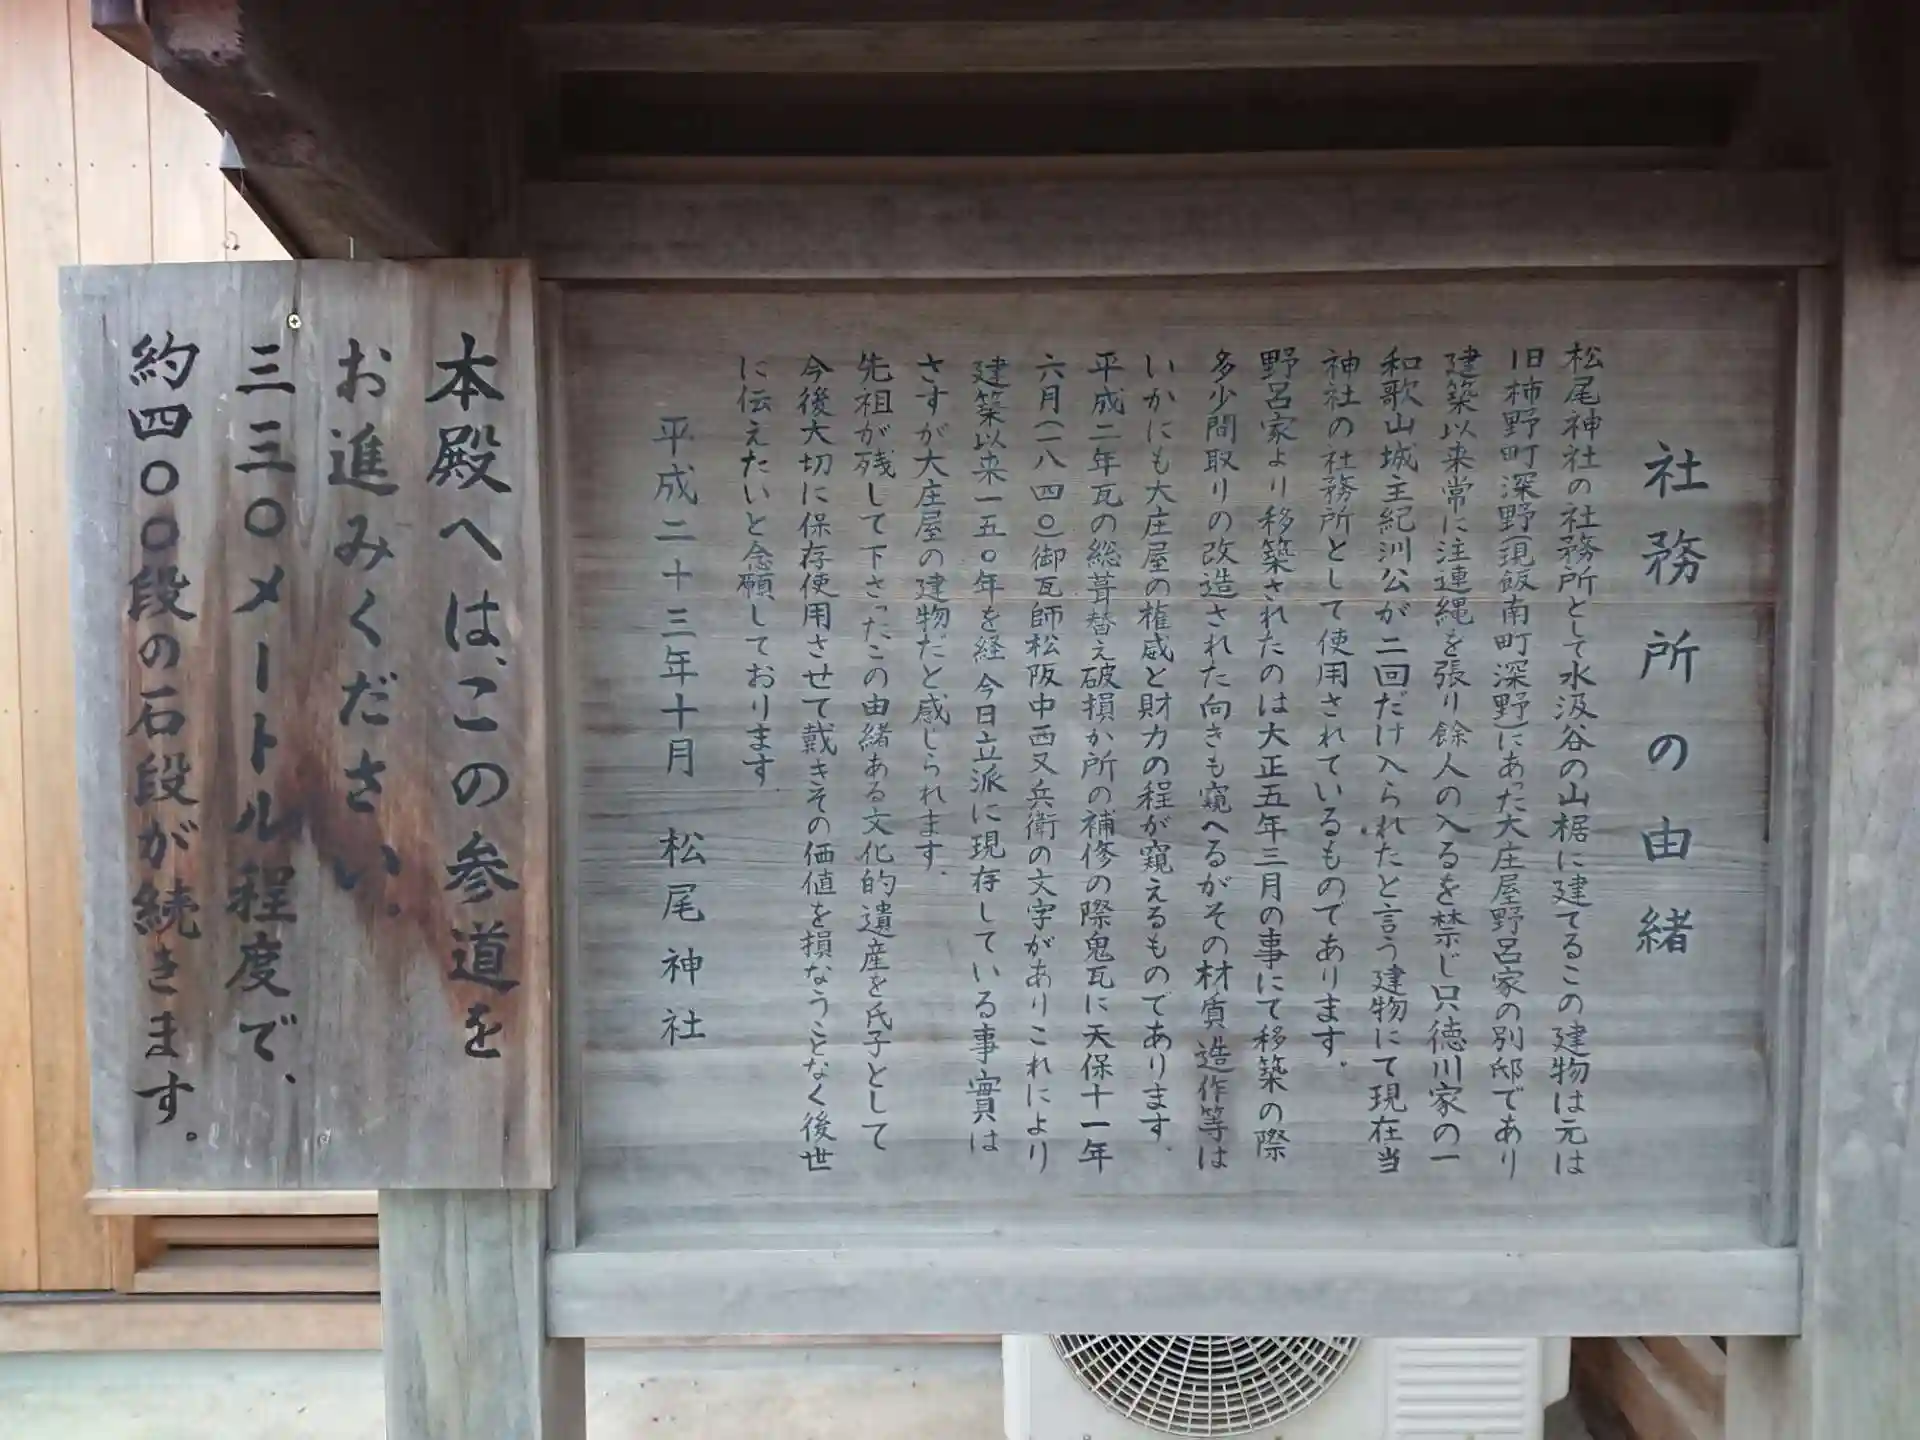 社務所の由緒
松尾神社の社務所として水汲谷の山椐に建てるこの建物は元は
旧柿野町深野(現飯南町深野)にあった大庄屋野呂家の別邸であり
建築以来常に注連縄を張り餘人の入るを禁じ只徳川家の一
和歌山城主紀州公が二回だけ入られたと言う建物にて現在当
神社の社務所として使用されているものであります。
野呂家より移築されたのは大正五年三月の事にて移築の際
多少間取りの改造された向きも窺へるがその材質造作等は
いかにも大庄屋の権威と財力の程が窺えるものであります。
平成二年瓦の総葺替え破損か所の補修の際鬼瓦に天保十一年
六月(一八四〇)御瓦師松阪中西又兵衛の文字がありこれにより
建築以来一五〇年を経今日立派に現存している事實は
さすが大庄屋の建物だと感じられます。
先祖が残して下さったこの由緒ある文化的遺産を氏子として
今後大切に保存使用させて戴きその価値を損なうことなく後世
に伝えたいと念願しております
平成二十三年十月 松尾神社
本殿へは、この参道を
お進みください。
三三〇メートル程度で、
約四〇〇段の石段が続きます。